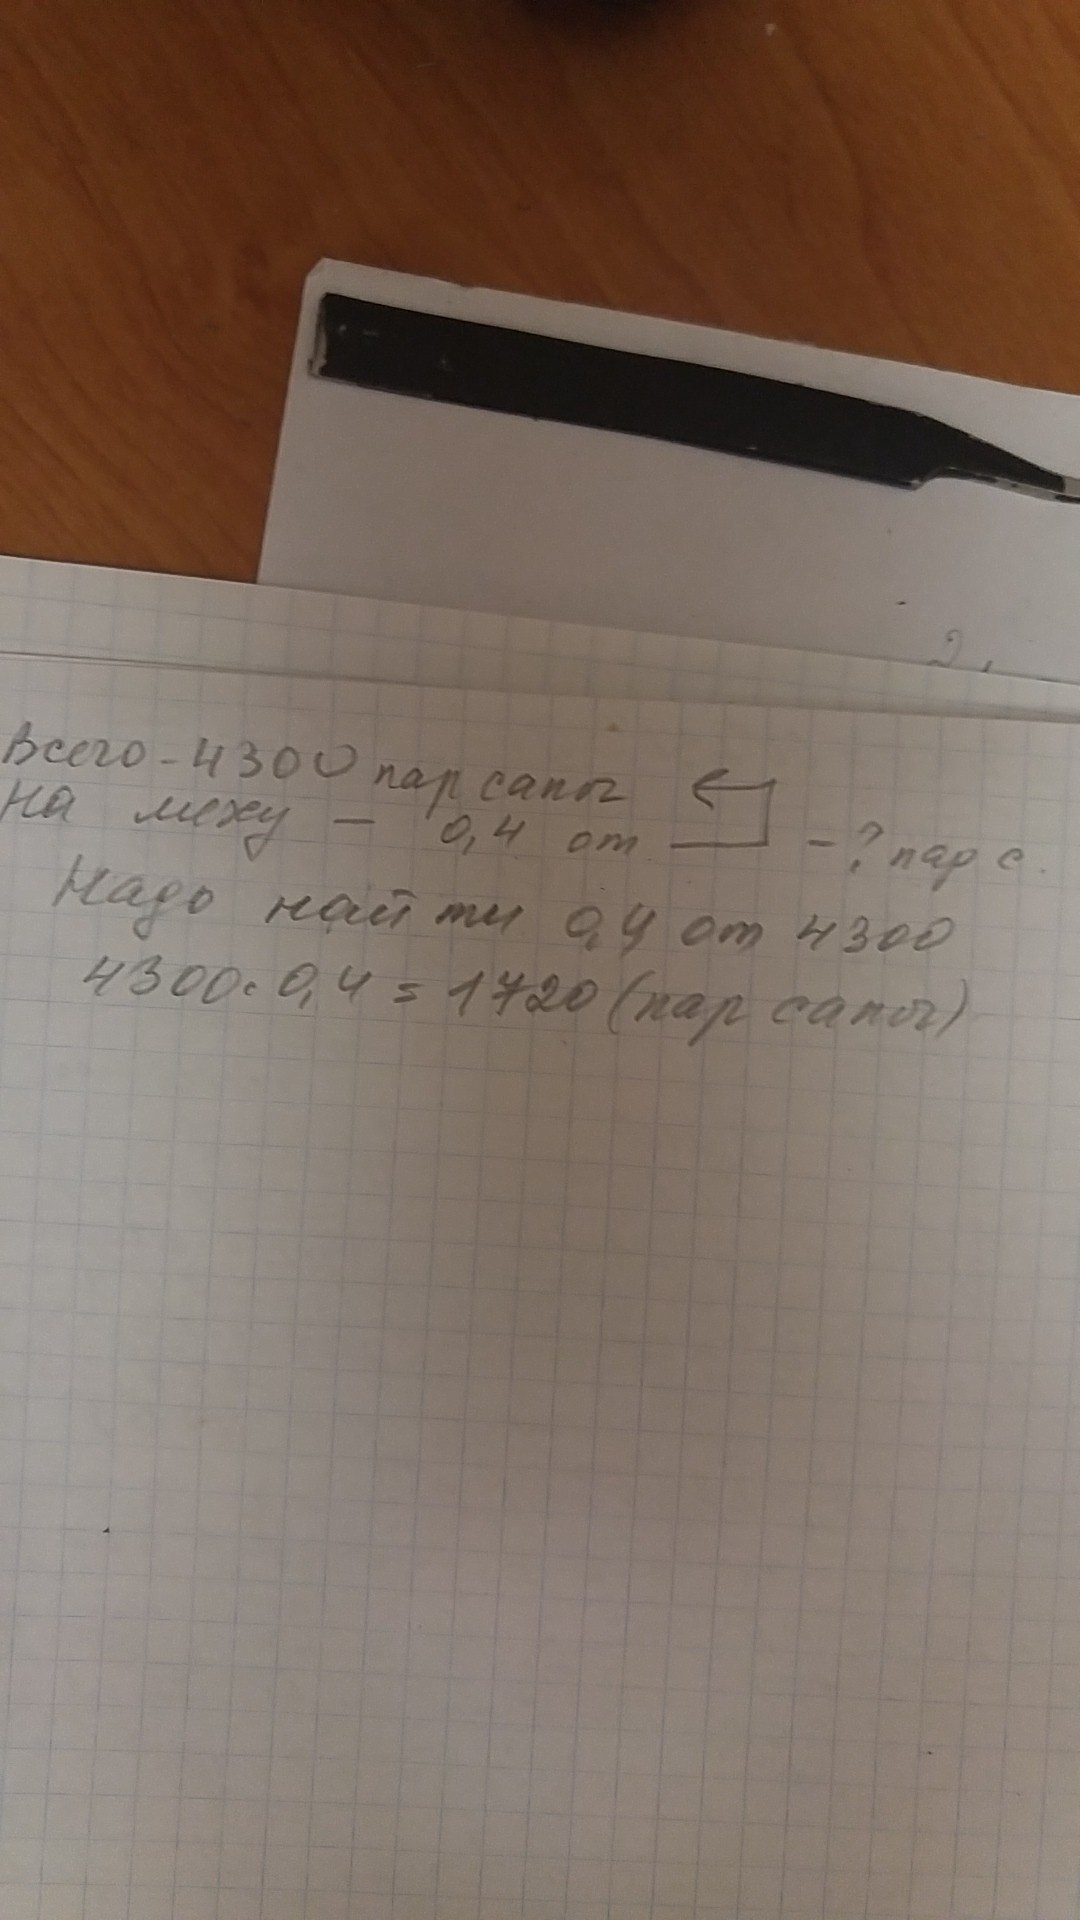 2,
Всего - 4300 пар сапог
На меху - 0,4 от - ? пар с.
Надо найти 0,4 от 4300
4300 · 0,4 = 1720 (пар сапог)